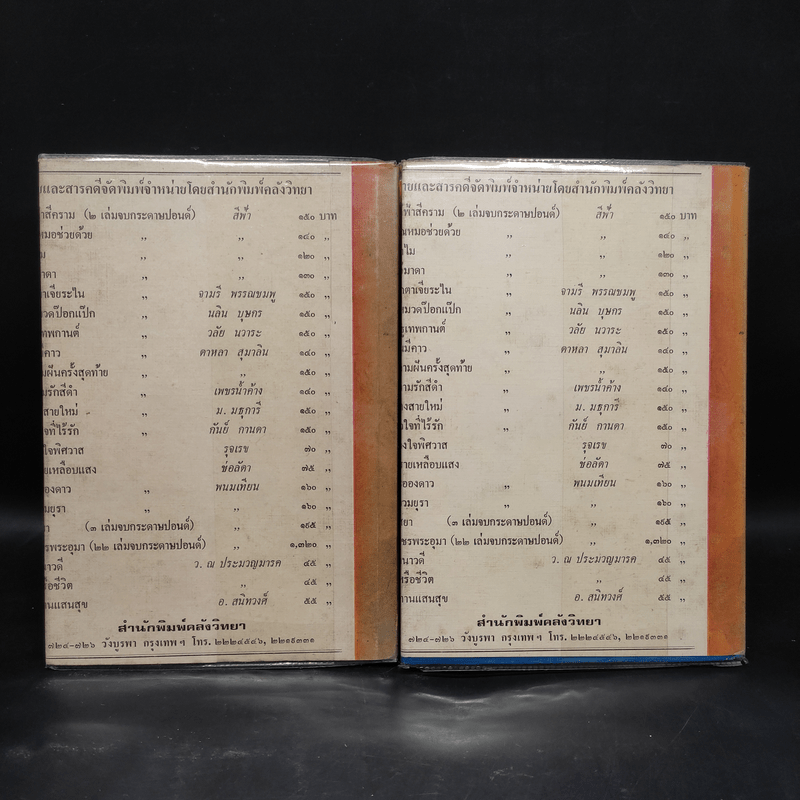 ยและสารคดีจัดพิมพ์จำหน่ายโดยสำนักพิมพ์คลังวิทยา
าสีคราม (๒ เล่มจบกระดาษปอนด์) สีฟ้า ๑๕๐ บาท
หมอช่วยด้วย ,, ,, ๑๔๐ ,,
ม ,, ,, ๑๒๐ ,,
าดา ,, ,, ๑๓๐ ,,
าเจียระไน ,, จามรี พรรณชมพู ๑๕๐ ,,
มวดป๊อกแป๊ก ,, นลิน บุษกร ๑๕๐ ,,
เทพกานต์ ,, วลัย นวาระ ๑๕๐ ,,
คาว ,, ดาหลา สุมาลิน ๑๔๐ ,,
มฝันครั้งสุดท้าย ,, ,, ๑๕๐ ,,
มรักสีดำ ,, เพชรน้ำค้าง ๑๔๐ ,,
สายใหม่ ,, ม. มธุการี ๑๕๐ ,,
จที่ไร้รัก ,, กันย์ กานดา ๑๕๐ ,,
ใจพิศวาส รุจเรข ๗๐ ,,
ยเหลือบแสง ช่อลัดา ๗๕ ,,
ของดาว ,, พนมเทียน ๑๖๐ ,,
วมยุรา ,, ,, ๑๖๐ ,,
า (๓ เล่มจบกระดาษปอนด์) ,, ๑๙๕ ,,
ชรพระอุมา (๒๒ เล่มจบกระดาษปอนด์) ,, ๑,๓๒๐ ,,
าวดี ว. ณ ประมวญมารค ๔๕ ,,
รือชีวิต ,, ๔๕ ,,
านแสนสุข อ. สนิทวงศ์ ๕๕ ,,
สำนักพิมพ์คลังวิทยา
๗๒๔-๗๒๖ วังบูรพา กรุงเทพ ฯ โทร. ๒๒๒๔๕๔๖, ๒๒๑๙๓๓๑
ายและสารคดีจัดพิมพ์จำหน่ายโดยสำนักพิมพ์คลังวิทยา
ฟ้าสีคราม (๒ เล่มจบกระดาษปอนด์) สีฟ้า ๑๕๐ บาท
ณหมอช่วยด้วย ,, ,, ๑๔๐ ,,
ไม ,, ,, ๑๒๐ ,,
มาดา ,, ,, ๑๓๐ ,,
ตาเจียระไน ,, จามรี พรรณชมพู ๑๕๐ ,,
หมวดป๊อกแป๊ก ,, นลิน บุษกร ๑๕๐ ,,
ูเทพกานต์ ,, วลัย นวาระ ๑๕๐ ,,
มีคาว ,, ดาหลา สุมาลิน ๑๔๐ ,,
ามฝันครั้งสุดท้าย ,, ,, ๑๕๐ ,,
ามรักสีดำ ,, เพชรน้ำค้าง ๑๔๐ ,,
งสายใหม่ ,, ม. มธุการี ๑๕๐ ,,
ใจที่ไร้รัก ,, กันย์ กานดา ๑๕๐ ,,
งใจพิศวาส รุจเรข ๗๐ ,,
ายเหลือบแสง ช่อลัดา ๗๕ ,,
อของดาว ,, พนมเทียน ๑๖๐ ,,
วมยุรา ,, ,, ๑๖๐ ,,
ยา (๓ เล่มจบกระดาษปอนด์) ,, ๑๙๕ ,,
ชรพระอุมา (๒๒ เล่มจบกระดาษปอนด์) ,, ๑,๓๒๐ ,,
นาวดี ว. ณ ประมวญมารค ๔๕ ,,
หรือชีวิต ,, ๔๕ ,,
านแสนสุข อ. สนิทวงศ์ ๕๕ ,,
สำนักพิมพ์คลังวิทยา
๗๒๔-๗๒๖ วังบูรพา กรุงเทพ ฯ โทร. ๒๒๒๔๕๔๖, ๒๒๑๙๓๓๑